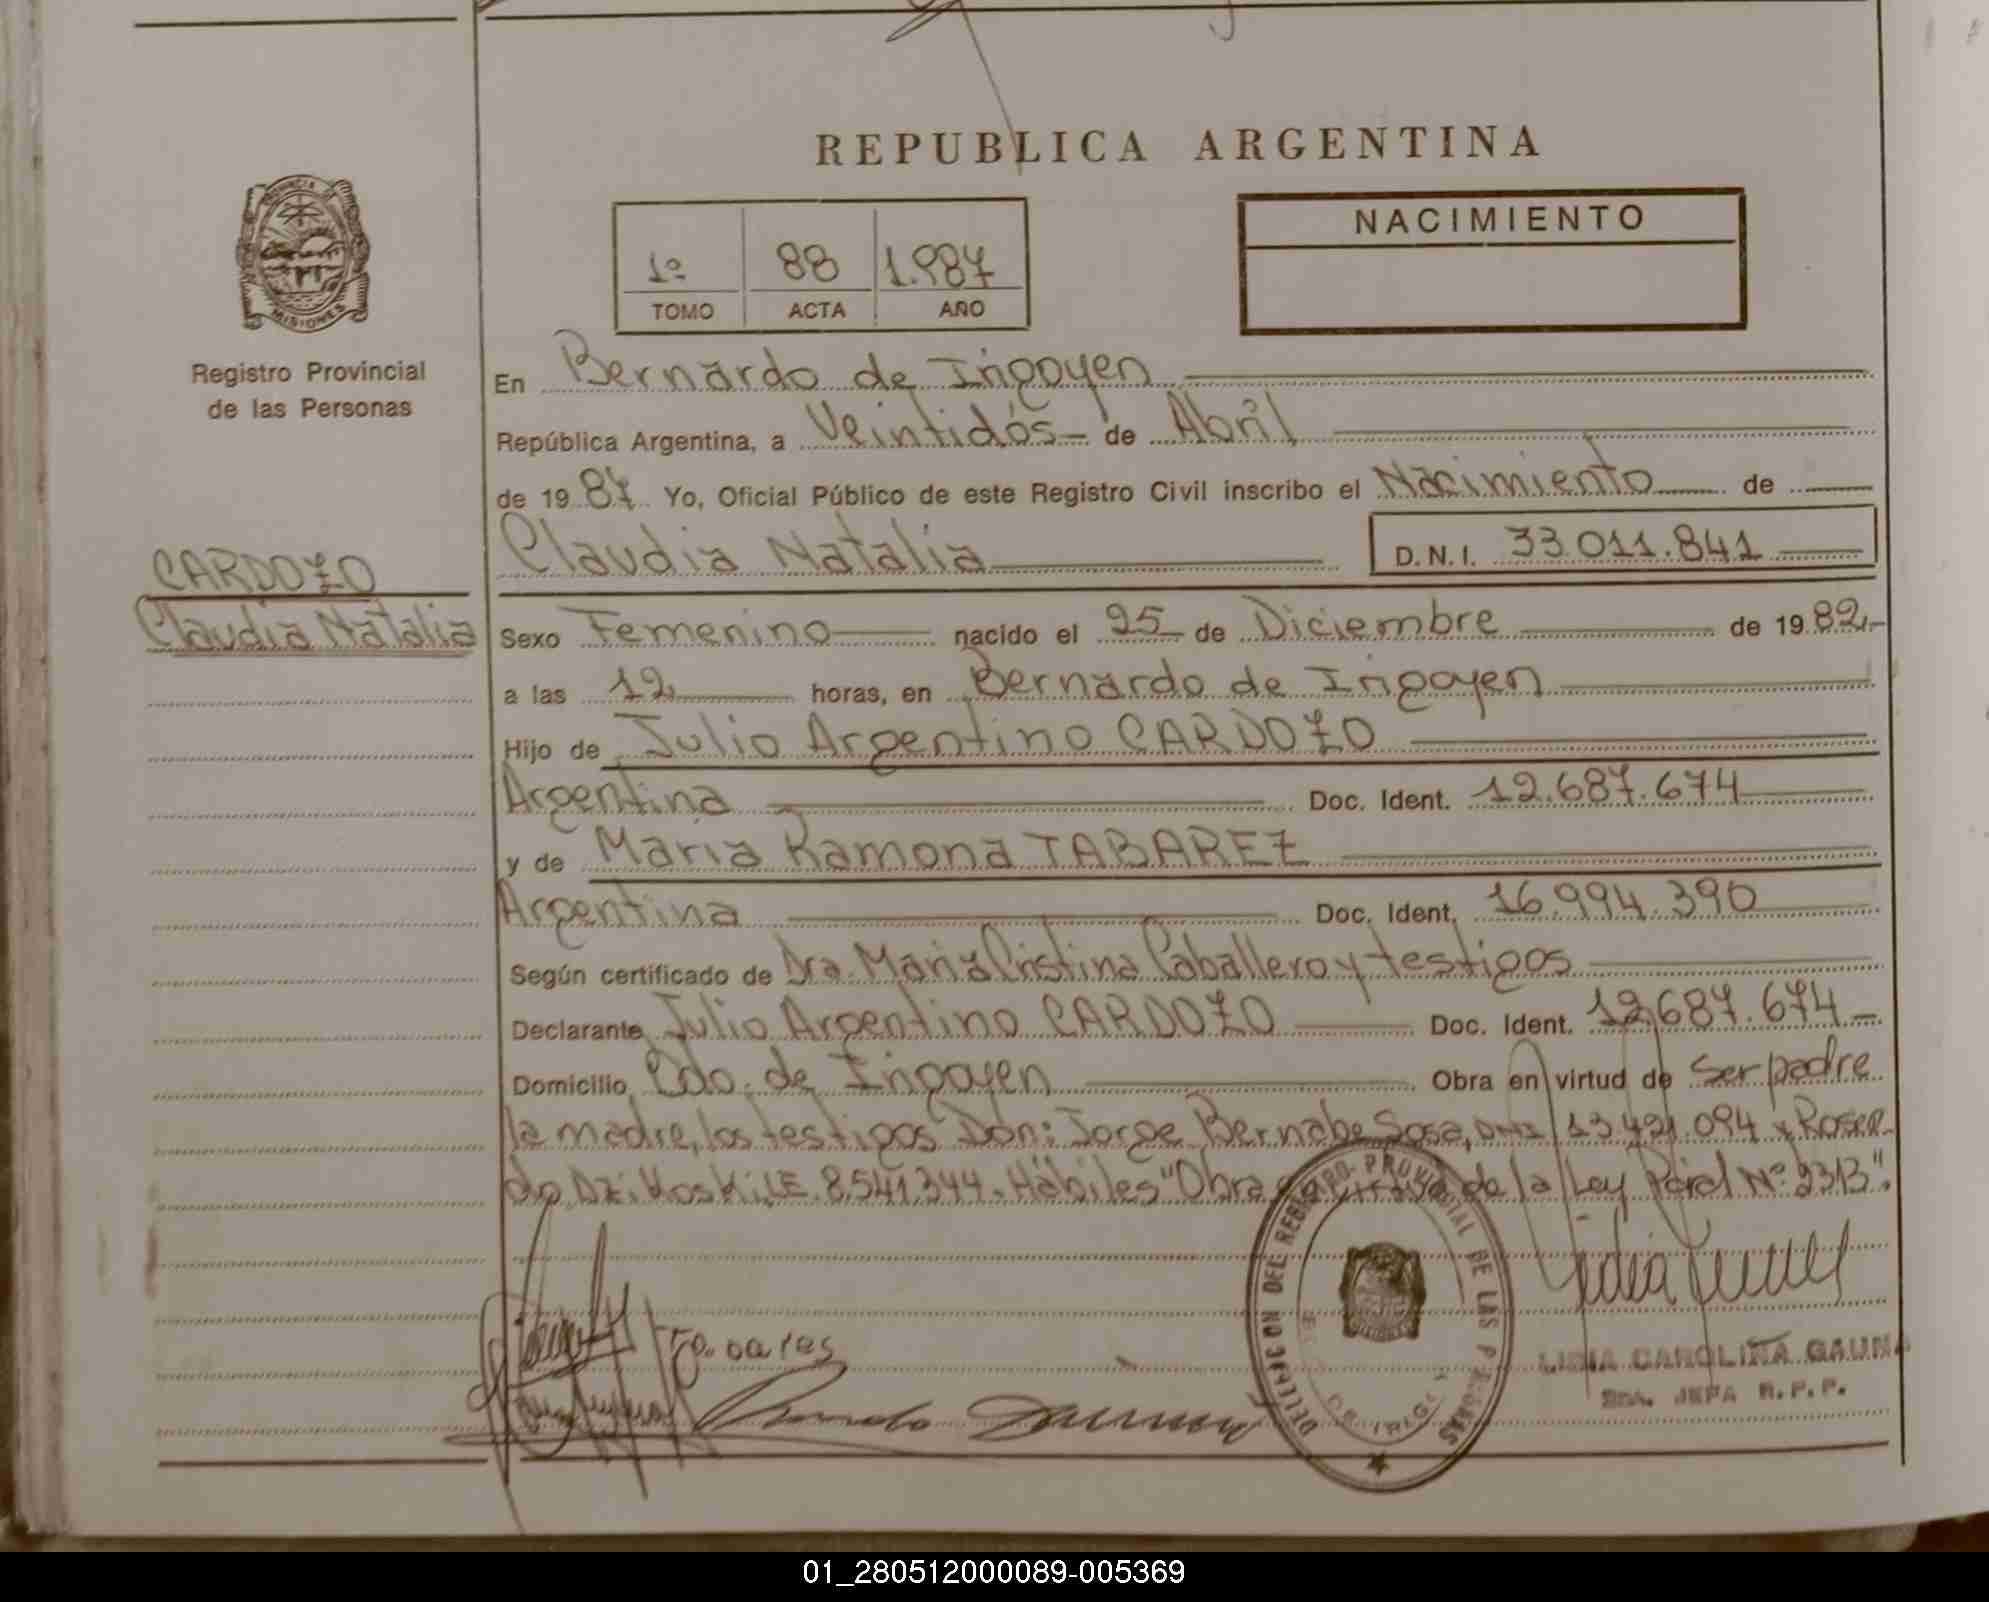 REPUBLICA ARGENTINA
NACIMIENTO
1º 88 1.987
TOMO ACTA AÑO
PROVINCIA DE
MISIONES
Registro Provincial
de las Personas
En Bernardo de Irigoyen
República Argentina, a Veintidós de Abril
de 1987 Yo, Oficial Público de este Registro Civil inscribo el Nacimiento de
Claudia Natalia D.N.I. 33.011.841
CARDOZO
Claudia Natalia
Sexo Femenino nacido el 25 de Diciembre de 1982
a las 12 horas, en Bernardo de Irigoyen
Hijo de Julio Argentino CARDOZO
Argentina Doc. Ident. 12.687.674
y de María Ramona TABAREZ
Argentina Doc. Ident. 16.994.390
Según certificado de Dra. María Cristina Caballero y testigos
Declarante Julio Argentino CARDOZO Doc. Ident. 12.687.674
Domicilio Bdo. de Irigoyen Obra en virtud de Ser padre
la madre, los testigos Don: Jorge Bernabe Sosa, DNI 13.421.094 y Rosen-
do LE. 8.541.344. Hábiles "Obra en virtud de la Ley Pcial Nº 2313".
DELEGACION DEL REGISTRO PROVINCIAL DE LAS PERSONAS
LIDIA CAROLINA GAUNA
JEFA R.P.P.
01_280512000089-005369